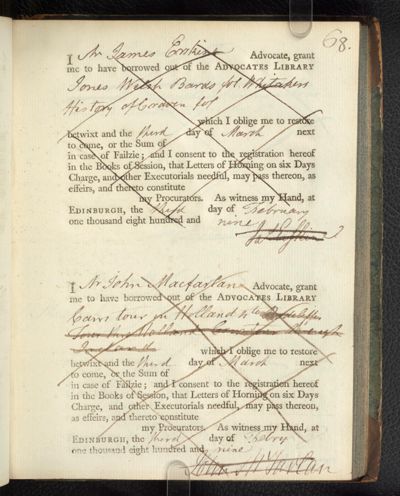 68.
I Mr James Erskine Advocate, grant
me to have borrowed out of the ADVOCATES LIBRARY
Jones Welsh Bards fol Whitakers
History of Craven fol
which I oblige me to restore
betwixt and the third day of March next
to come, or the Sum of
in case of Failzie; and I consent to the registration hereof
in the Books of Session, that Letters of Horning on six Days
Charge, and other Executorials needful, may pass thereon, as
effeirs, and thereto constitute
my Procurators. As witness my Hand, at
EDINBURGH, the third day of February
one thousand eight hundred and nine
Ja Erskine
I Mr John Macfarlane Advocate, grant
me to have borrowed out of the ADVOCATES LIBRARY
Carrs tour in Holland 4to
Tour Holland
which I oblige me to restore
betwixt and the third day of March next
to come, or the Sum of
in case of Failzie; and I consent to the registration hereof
in the Books of Session, that Letters of Horning on six Days
Charge, and other Executorials needful, may pass thereon,
as effeirs, and thereto constitute
my Procurators. As witness my Hand, at
EDINBURGH, the third day of Febry
one thousand eight hundred and nine
John